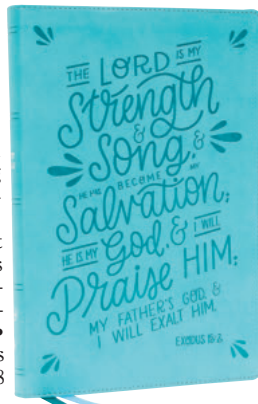 THE LORD IS MY
Strength
&
Song, &
HE HAS BECOME MY
Salvation;
HE IS MY God, & I WILL
Praise HIM;
MY FATHER'S GOD, &
I WILL EXALT HIM.
EXODUS 15:2